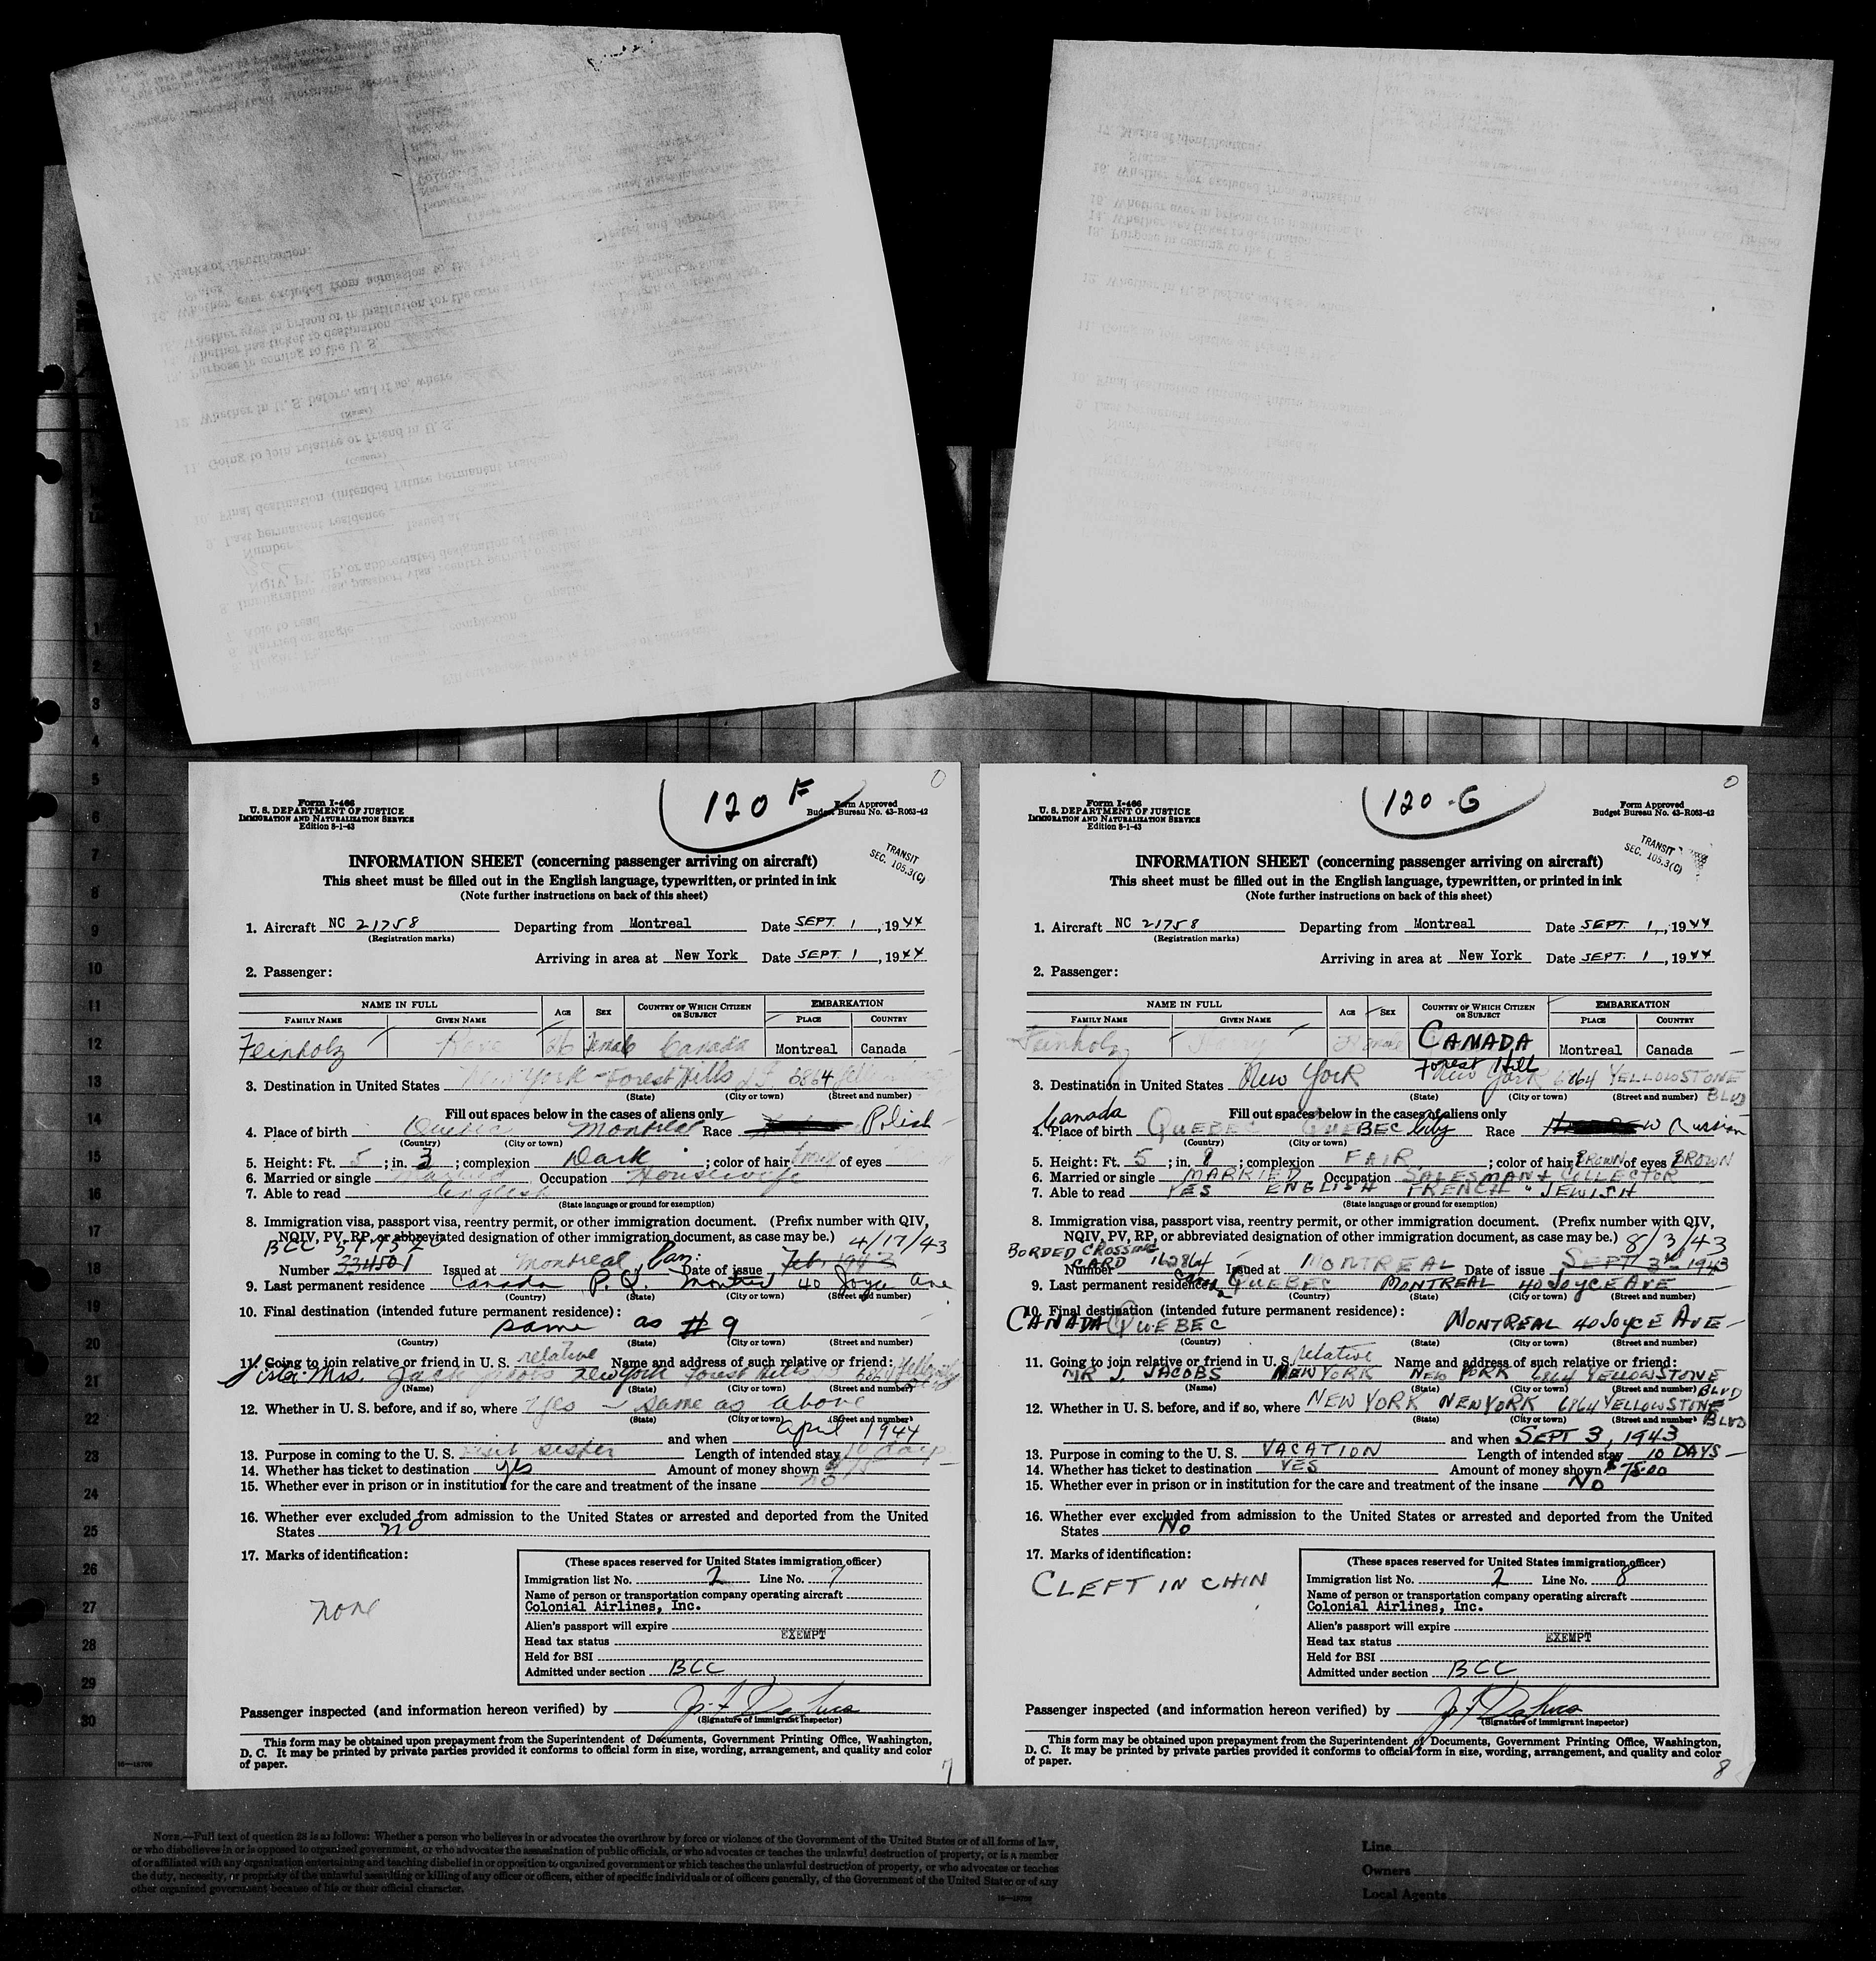 120 F
Form I-466
U. S. DEPARTMENT OF JUSTICE
IMMIGRATION AND NATURALIZATION SERVICE
Edition 8-1-43
Form Approved
Budget Bureau No. 43-R063-42
TRANSIT
SEC. 105.3(C)
INFORMATION SHEET (concerning passenger arriving on aircraft)
This sheet must be filled out in the English language, typewritten, or printed in ink
(Note further instructions on back of this sheet)
1. Aircraft NC 21758 Departing from Montreal Date SEPT. 1, 1944
(Registration marks)
Arriving in area at New York Date SEPT. 1, 1944
2. Passenger:
NAME IN FULL AGE SEX COUNTRY OF WHICH CITIZEN OR SUBJECT EMBARKATION
FAMILY NAME GIVEN NAME PLACE COUNTRY
Feinholz Rose 26 Female Canada Montreal Canada
3. Destination in United States New York - Forest Hills 6864
(State) (City or town) (Street and number)
Fill out spaces below in the cases of aliens only
4. Place of birth Quebec Montreal Race Polish
(Country) (City or town)
5. Height: Ft. 5; in. 3; complexion Dark; color of hair brown of eyes
6. Married or single Married Occupation Housewife
7. Able to read English
(State language or ground for exemption)
8. Immigration visa, passport visa, reentry permit, or other immigration document. (Prefix number with QIV,
NQIV, PV, RP, or abbreviated designation of other immigration document, as case may be.) 4/17/43
BCC
Number 334501 Issued at Montreal, Can. Date of issue Feb. 1943
9. Last permanent residence Canada P.Q. Montreal 40 Joyce Ave
(Country) (State) (City or town) (Street and number)
10. Final destination (intended future permanent residence):
same as #9
(Country) (State) (City or town) (Street and number)
11. Going to join relative or friend in U. S. relative Name and address of such relative or friend:
Sister Mrs. Jack Jacobs New York Forest Hills 6864
(Name) (State) (City or town) (Street and number)
12. Whether in U. S. before, and if so, where Yes - same as above
(State) (City or town) (Street and number)
and when April 1944
13. Purpose in coming to the U. S. visit sister Length of intended stay 10 days
14. Whether has ticket to destination yes Amount of money shown $75
15. Whether ever in prison or in institution for the care and treatment of the insane no
16. Whether ever excluded from admission to the United States or arrested and deported from the United
States no
17. Marks of identification:
none
(These spaces reserved for United States immigration officer)
Immigration list No. 2 Line No. 7
Name of person or transportation company operating aircraft
Colonial Airlines, Inc.
Alien's passport will expire
Head tax status EXEMPT
Held for BSI
Admitted under section BCC
Passenger inspected (and information hereon verified) by
(Signature of Immigrant Inspector)
This form may be obtained upon prepayment from the Superintendent of Documents, Government Printing Office, Washington,
D. C. It may be printed by private parties provided it conforms to official form in size, wording, arrangement, and quality and color
of paper.
7
120-G
Form I-466
U. S. DEPARTMENT OF JUSTICE
IMMIGRATION AND NATURALIZATION SERVICE
Edition 8-1-43
Form Approved
Budget Bureau No. 43-R063-42
TRANSIT
SEC. 105.3(C)
INFORMATION SHEET (concerning passenger arriving on aircraft)
This sheet must be filled out in the English language, typewritten, or printed in ink
(Note further instructions on back of this sheet)
1. Aircraft NC 21758 Departing from Montreal Date SEPT. 1, 1944
(Registration marks)
Arriving in area at New York Date SEPT. 1, 1944
2. Passenger:
NAME IN FULL AGE SEX COUNTRY OF WHICH CITIZEN OR SUBJECT EMBARKATION
FAMILY NAME GIVEN NAME PLACE COUNTRY
Feinholz CANADA Montreal Canada
Forest Hill
3. Destination in United States New York New York 6864 YELLOWSTONE BLVD
(State) (City or town) (Street and number)
Fill out spaces below in the cases of aliens only
Canada
4. Place of birth QUEBEC QUEBEC City Race Russian
(Country) (City or town)
5. Height: Ft. 5; in.; complexion FAIR; color of hair BROWN of eyes BROWN
6. Married or single MARRIED Occupation SALESMAN & COLLECTOR
7. Able to read YES ENGLISH FRENCH JEWISH
(State language or ground for exemption)
8. Immigration visa, passport visa, reentry permit, or other immigration document. (Prefix number with QIV,
NQIV, PV, RP, or abbreviated designation of other immigration document, as case may be.) 8/3/43
BORDED CROSSING CARD
Number 162864 Issued at MONTREAL Date of issue SEPT 3rd 1943
9. Last permanent residence QUEBEC MONTREAL 40 JOYCE AVE
(Country) (State) (City or town) (Street and number)
10. Final destination (intended future permanent residence):
CANADA QUEBEC MONTREAL 40 JOYCE AVE
(Country) (State) (City or town) (Street and number)
11. Going to join relative or friend in U. S. relative Name and address of such relative or friend:
MR J. JACOBS NEW YORK NEW YORK 6864 YELLOWSTONE BLVD
(Name) (State) (City or town) (Street and number)
12. Whether in U. S. before, and if so, where NEW YORK NEW YORK 6864 YELLOWSTONE BLVD
(State) (City or town) (Street and number)
and when SEPT 3, 1943
13. Purpose in coming to the U. S. VACATION Length of intended stay 10 DAYS
14. Whether has ticket to destination YES Amount of money shown $75.00
15. Whether ever in prison or in institution for the care and treatment of the insane NO
16. Whether ever excluded from admission to the United States or arrested and deported from the United
States No
17. Marks of identification:
CLEFT IN CHIN
(These spaces reserved for United States immigration officer)
Immigration list No. 2 Line No. 8
Name of person or transportation company operating aircraft
Colonial Airlines, Inc.
Alien's passport will expire
Head tax status EXEMPT
Held for BSI
Admitted under section BCC
Passenger inspected (and information hereon verified) by
(Signature of Immigrant Inspector)
This form may be obtained upon prepayment from the Superintendent of Documents, Government Printing Office, Washington,
D. C. It may be printed by private parties provided it conforms to official form in size, wording, arrangement, and quality and color
of paper.
8
NOTE.—Full text of question 28 is as follows: Whether a person who believes in or advocates the overthrow by force or violence of the Government of the United States or of all forms of law,
or who disbelieves in or is opposed to organized government, or who advocates the assassination of public officials, or who advocates or teaches the unlawful destruction of property, or is a member
of or affiliated with any organization entertaining and teaching disbelief in or opposition to organized government or which teaches the unlawful destruction of property, or who advocates or teaches
the duty, necessity, or propriety of the unlawful assaulting or killing of any officer or officers, either of specific individuals or of officers generally, of the Government of the United States or of any
other organized government because of his or their official character.
Line
Owners
Local Agents